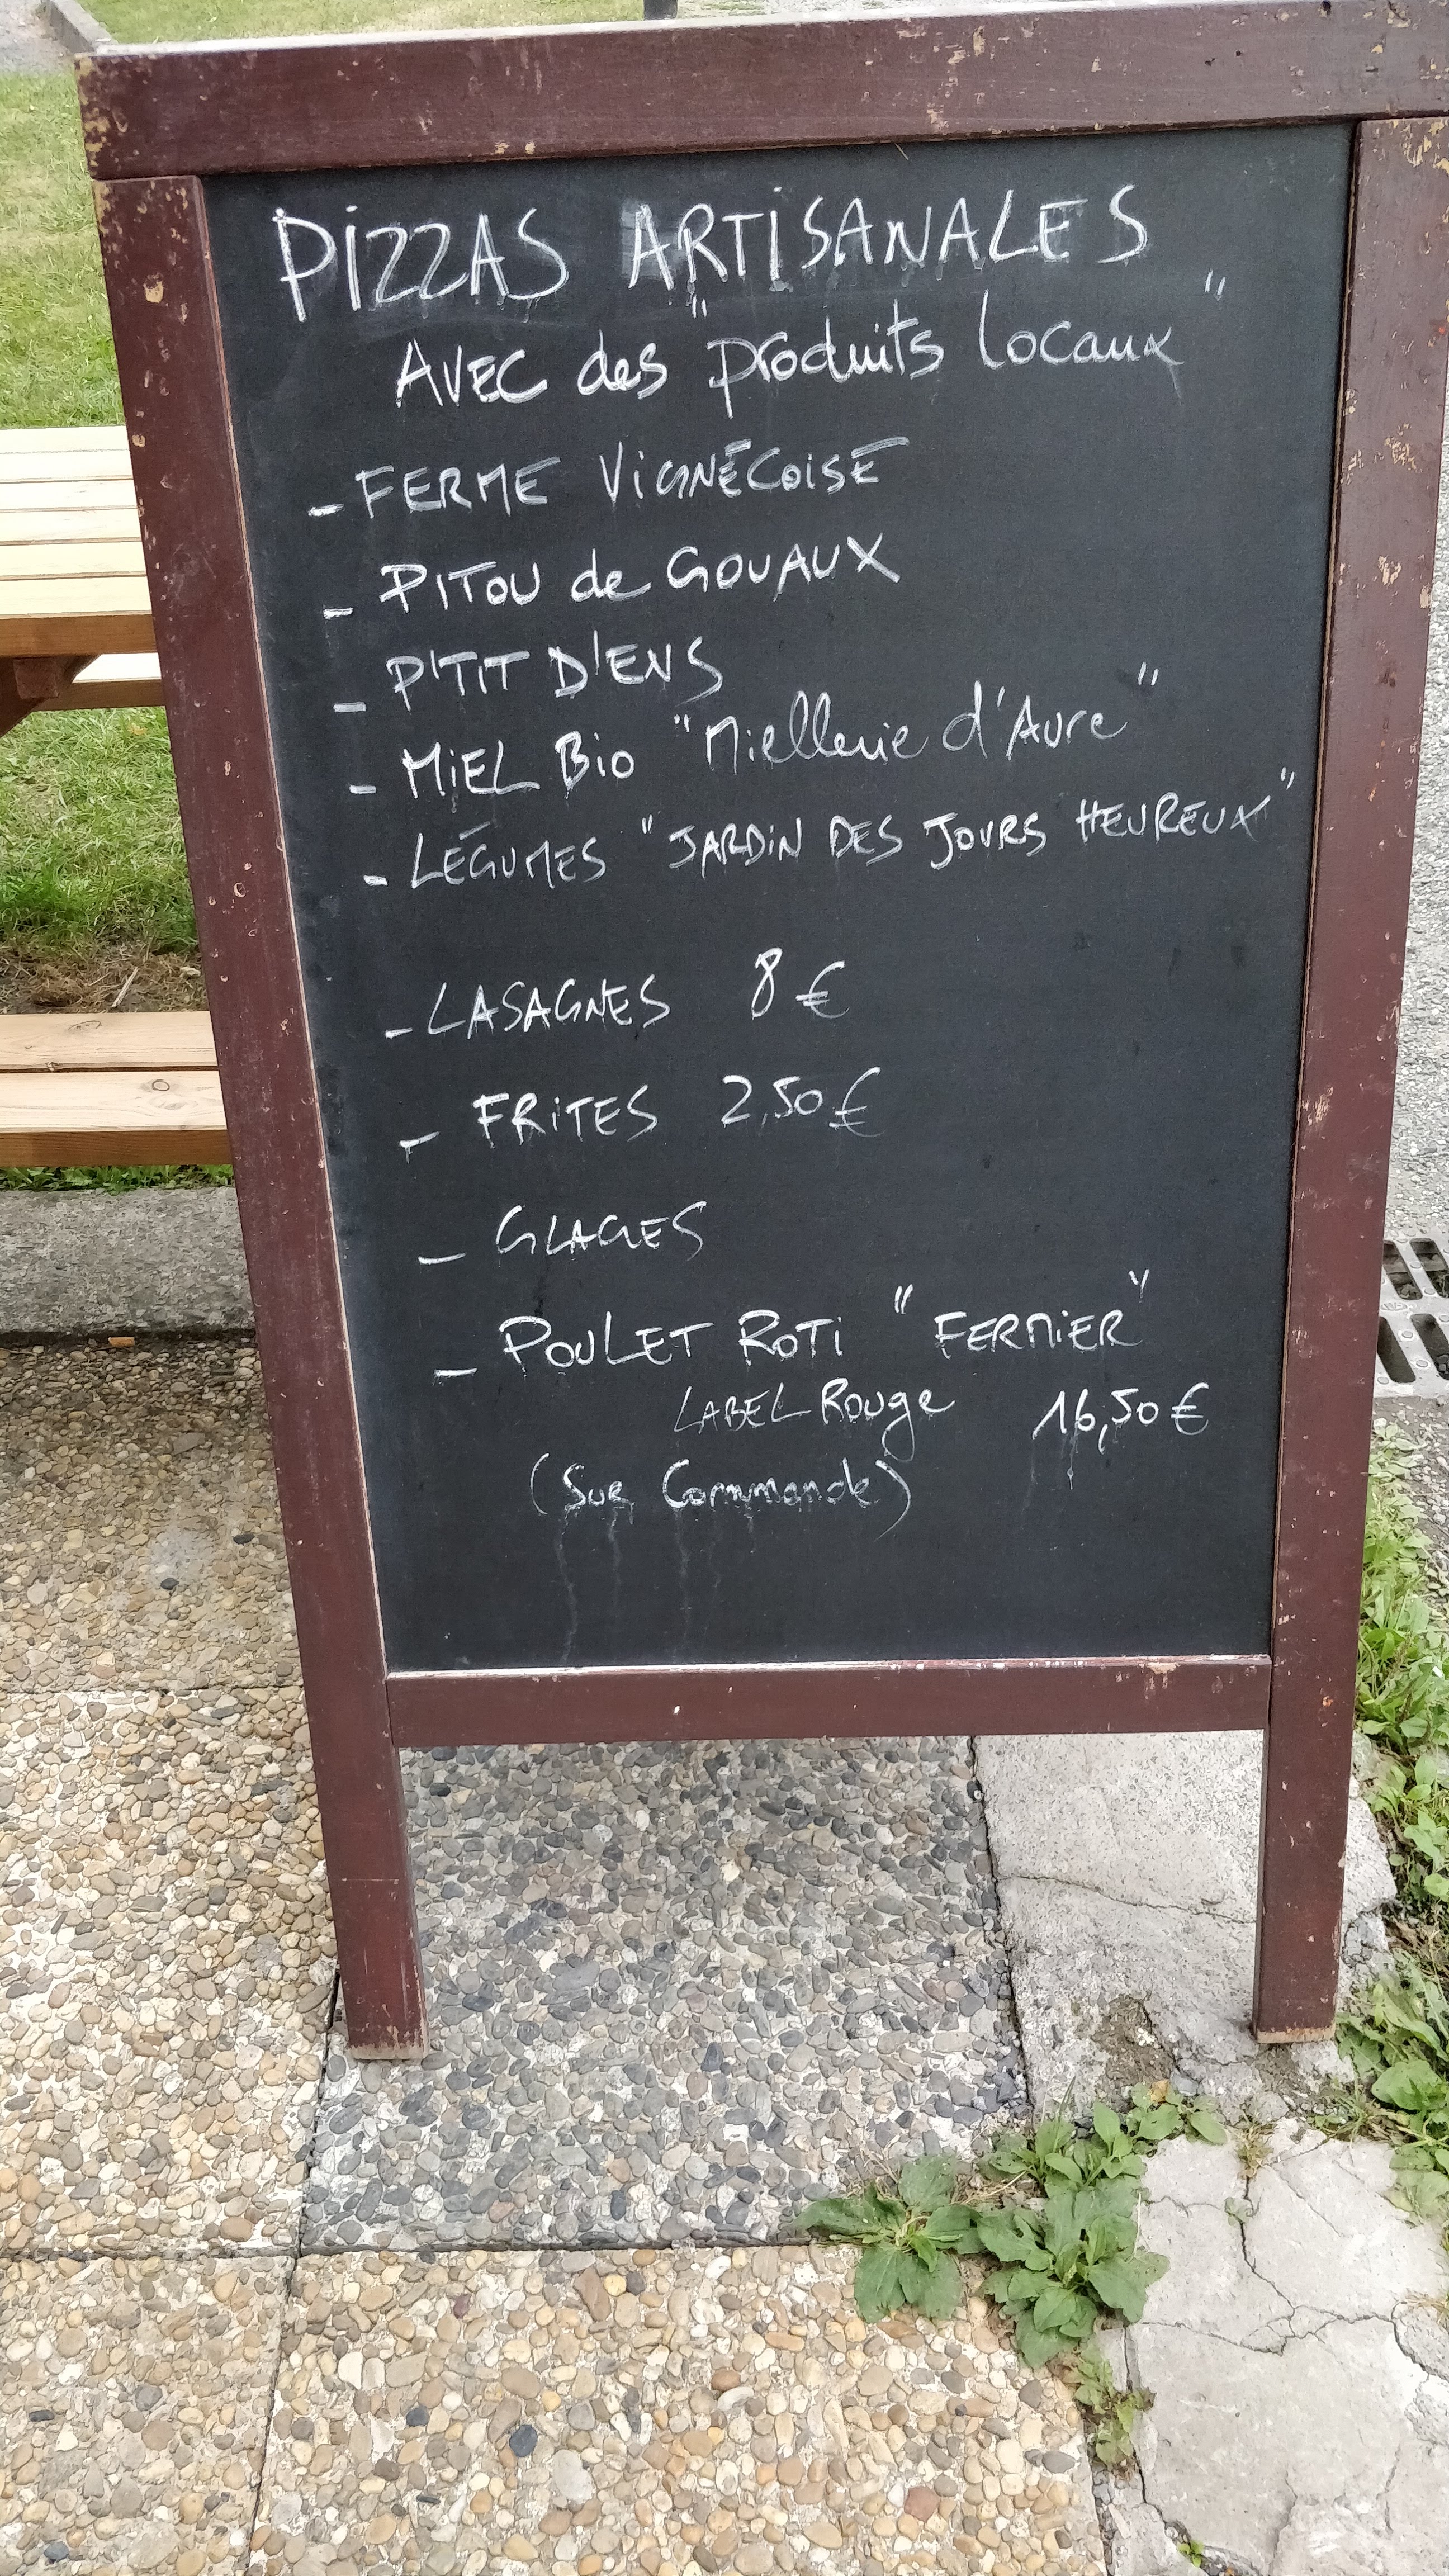 PIZZAS ARTISANALES
AVEC des "produits locaux"
- FERME VIGNÉCOISE
- PITOU de GOUAUX
- P'TIT D'ENS
- MIEL BIO "Miellerie d'Aure"
- LÉGUMES "JARDIN DES JOURS HEUREUX"
- LASAGNES 8 €
- FRITES 2,50 €
- GLACES
- POULET ROTI "FERMIER"
LABEL Rouge 16,50 €
(Sur Commande)